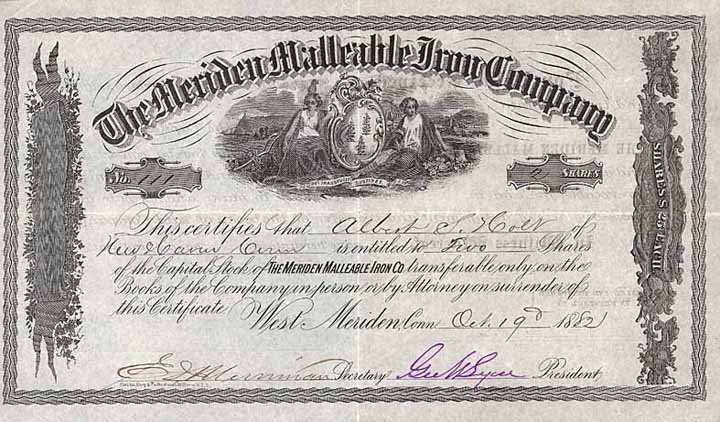 The Meriden Malleable Iron Company
No. 111
2 SHARES
SHARES $25 EACH
This certifies that Albert S. Holt of
New Haven Conn is entitled to Two Shares
of the Capital Stock of THE MERIDEN MALLEABLE IRON CO. transferable only on the
Books of the Company in person or by Attorney on surrender of
this Certificate
West Meriden Conn Oct. 19th 1882
Secretary President